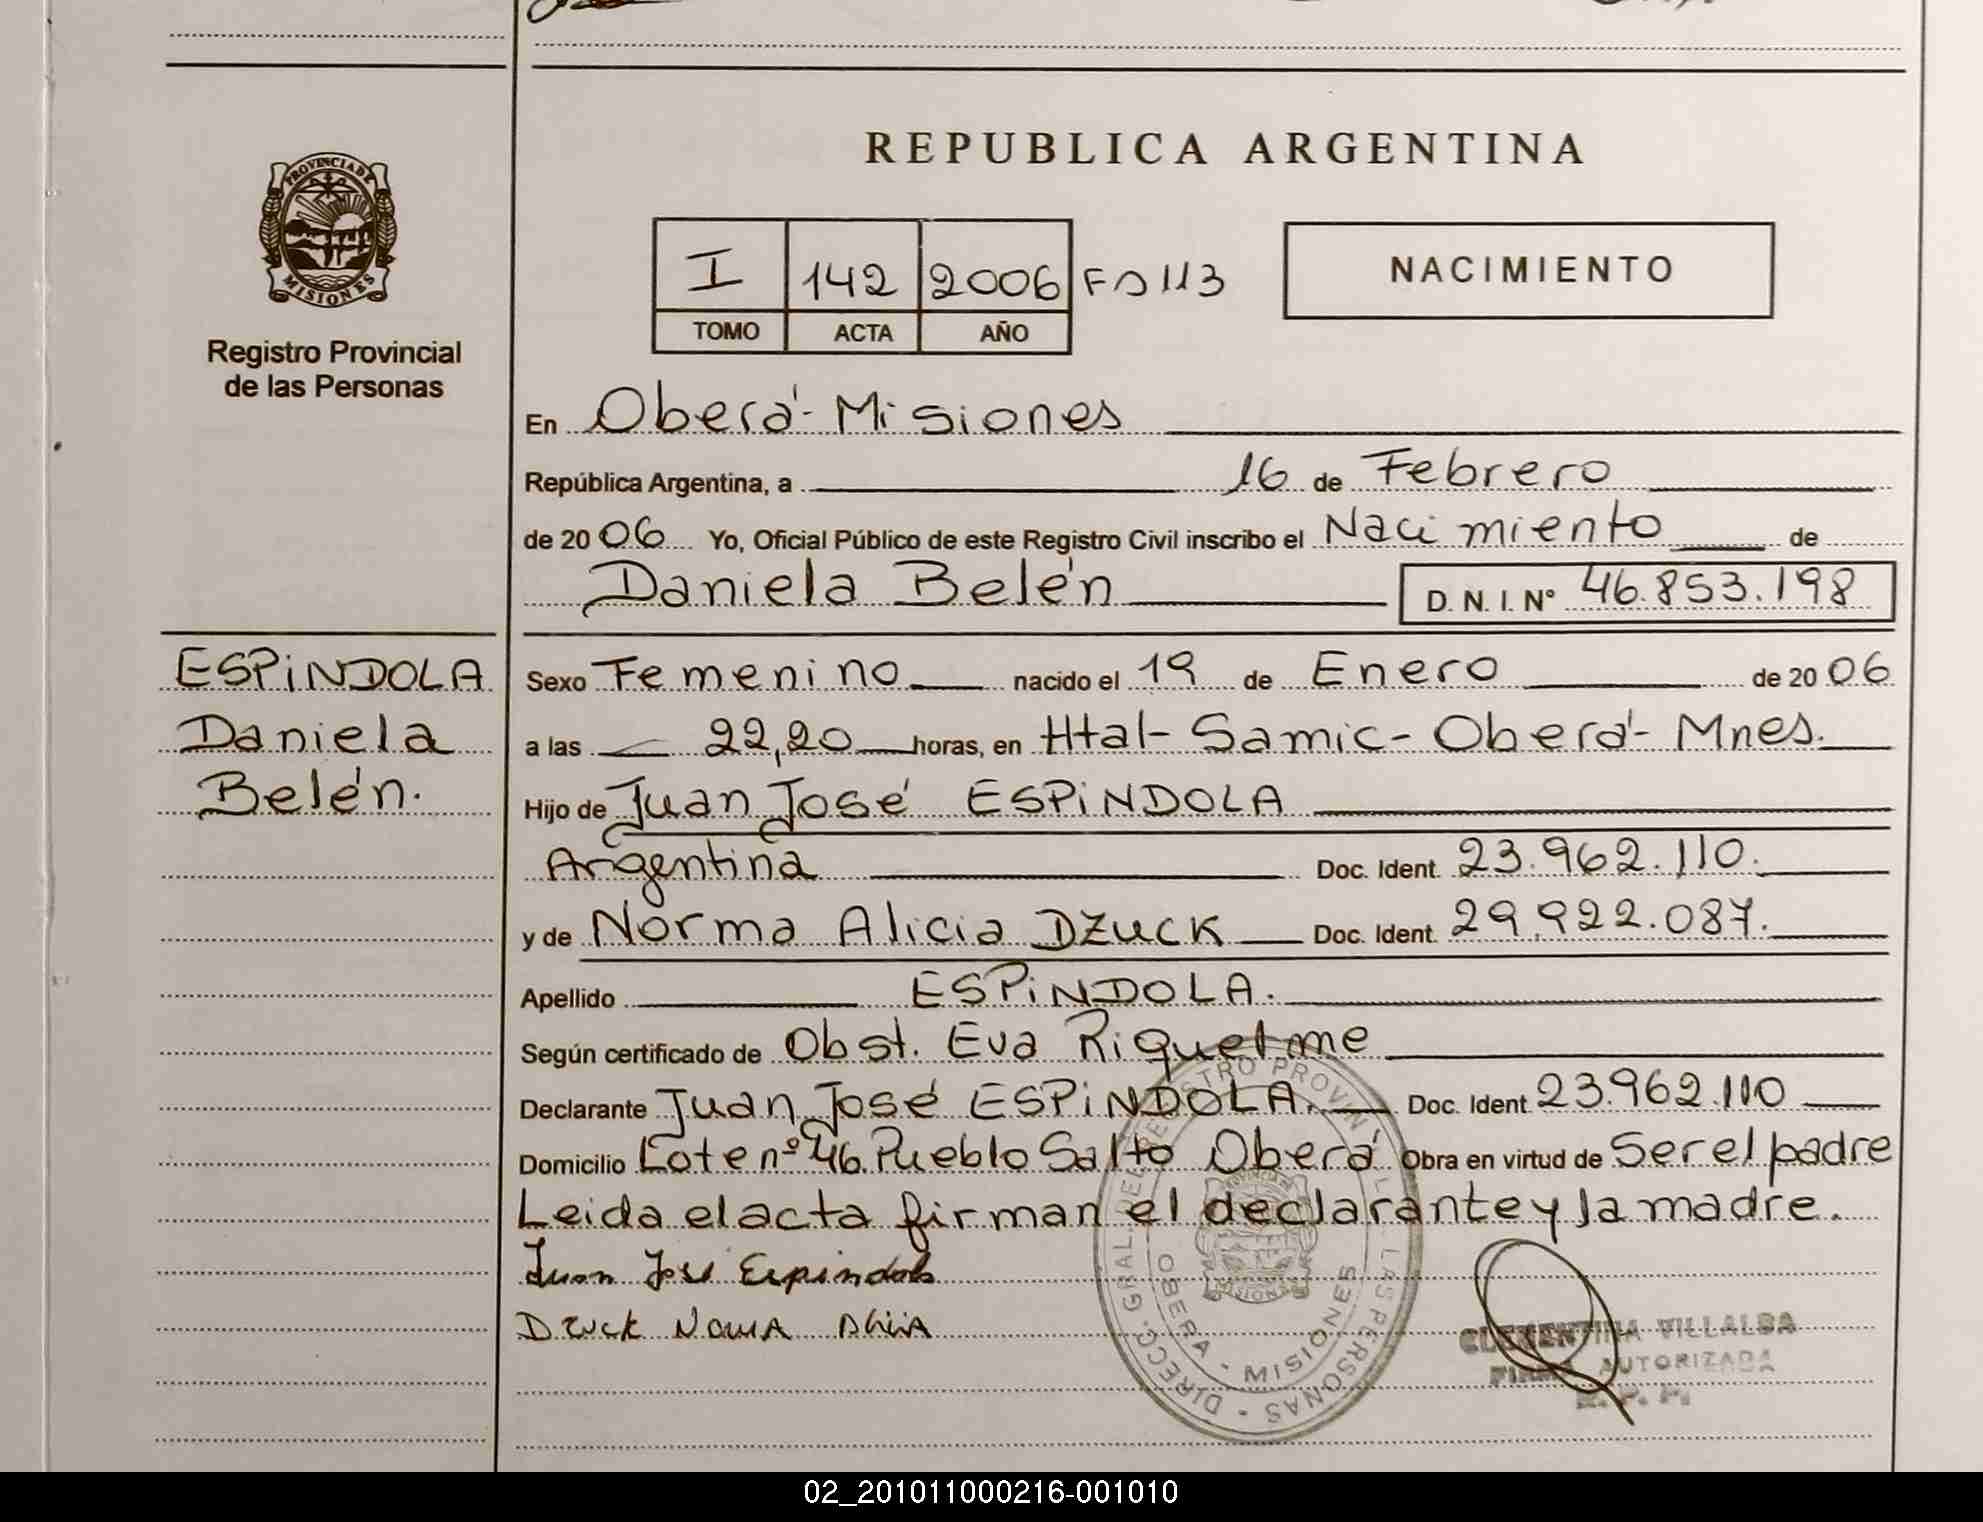 REPUBLICA ARGENTINA
PROVINCIA DE
MISIONES
Registro Provincial
de las Personas
I 142 2006 Fº 113
TOMO ACTA AÑO
NACIMIENTO
En Oberá - Misiones
República Argentina, a 16 de Febrero
de 2006 Yo, Oficial Público de este Registro Civil inscribo el Nacimiento de
Daniela Belén D. N. I. Nº 46.853.198
ESPiNDOLA
Daniela
Belén.
Sexo Femenino nacido el 19 de Enero de 2006
a las 22,20 horas, en Htal - Samic - Oberá - Mnes.
Hijo de Juan José ESPiNDOLA
Argentina Doc. Ident. 23.962.110.
y de Norma Alicia DZUCK Doc. Ident. 29.922.087.
Apellido ESPiNDOLA.
Según certificado de Obst. Eva Riquelme
Declarante Juan José ESPiNDOLA. Doc. Ident. 23.962.110
Domicilio Lote nº 46. Pueblo Salto Oberá Obra en virtud de Ser el padre
Leida el acta firman el declarante y la madre.
Juan José Espindola
Dzuck Norma Alicia
DIRECC. GRAL. DEL REGISTRO PROVINCIAL DE LAS PERSONAS
OBERA - MISIONES
CLEMENTINA VILLALBA
FIRMA AUTORIZADA
02_201011000216-001010